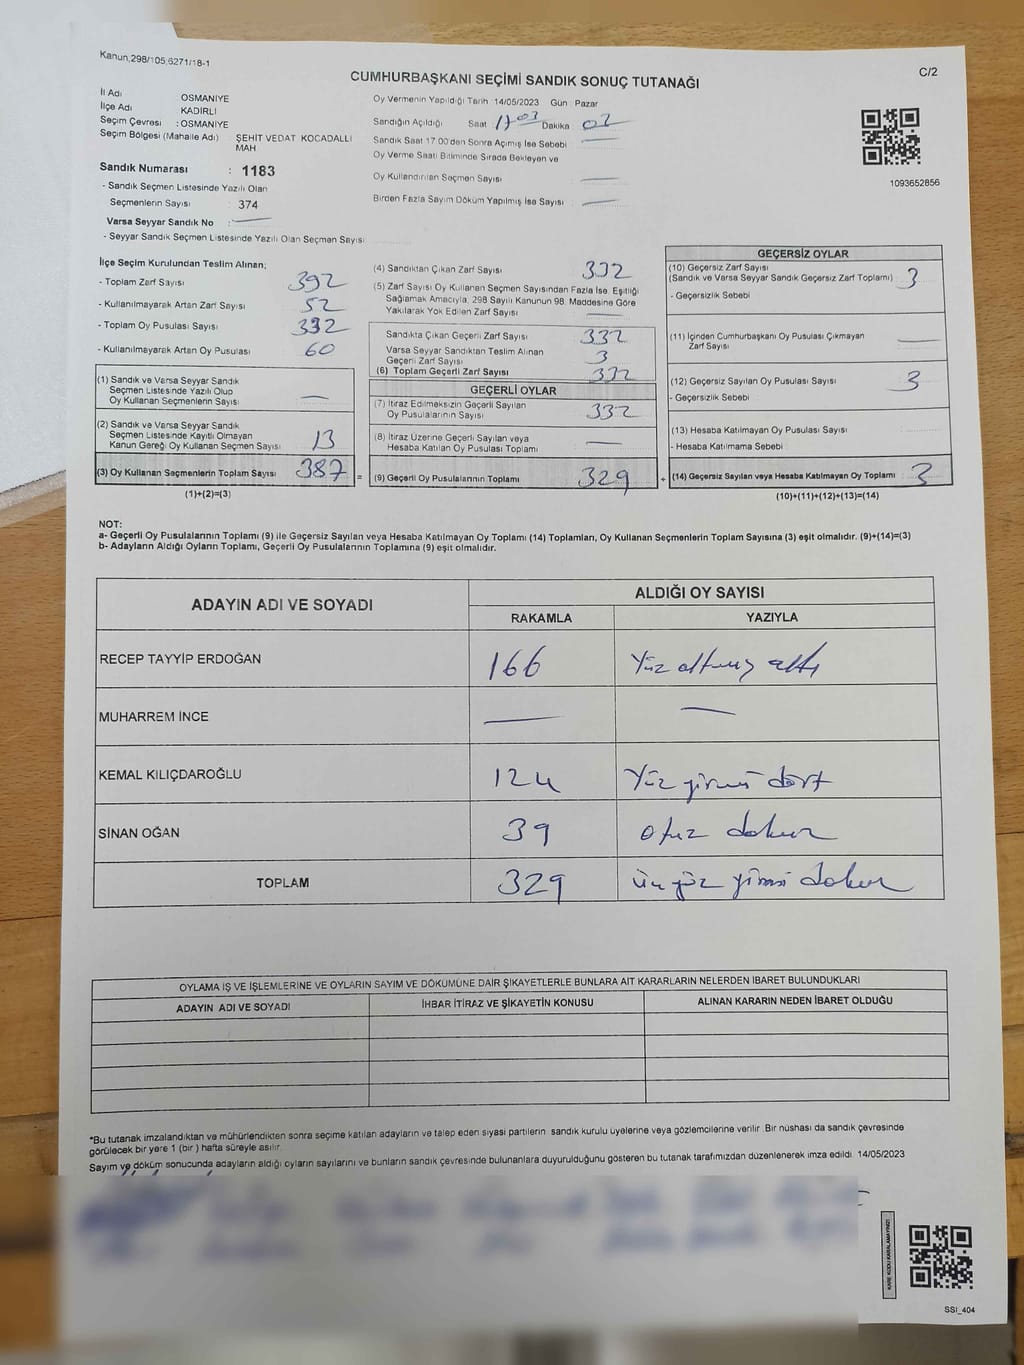 Kanun,298/105,6271/18-1
C/2
CUMHURBAŞKANI SEÇİMİ SANDIK SONUÇ TUTANAĞI
İl Adı OSMANİYE
İlçe Adı KADİRLİ
Seçim Çevresi : OSMANİYE
Seçim Bölgesi (Mahalle Adı) ŞEHİT VEDAT KOCADALLI MAH
Sandık Numarası : 1183
- Sandık Seçmen Listesinde Yazılı Olan
Seçmenlerin Sayısı : 374
Varsa Seyyar Sandık No :
- Seyyar Sandık Seçmen Listesinde Yazılı Olan Seçmen Sayısı
Oy Vermenin Yapıldığı Tarih 14/05/2023 Gün Pazar
Sandığın Açıldığı Saat Dakika 02
Sandık Saat 17:00'den Sonra Açmış İse Sebebi
Oy Verme Saati Bitiminde Sırada Bekleyen ve
Oy Kullandırılan Seçmen Sayısı
Birden Fazla Sayım Döküm Yapılmış İse Sayısı
1093652856
İlçe Seçim Kurulundan Teslim Alınan;
- Toplam Zarf Sayısı 392
- Kullanılmayarak Artan Zarf Sayısı 52
- Toplam Oy Pusulası Sayısı 392
- Kullanılmayarak Artan Oy Pusulası 60
(1) Sandık ve Varsa Seyyar Sandık
Seçmen Listesinde Yazılı Olup
Oy Kullanan Seçmenlerin Sayısı
(2) Sandık ve Varsa Seyyar Sandık
Seçmen Listesinde Kayıtlı Olmayan
Kanun Gereği Oy Kullanan Seçmen Sayısı 13
(3) Oy Kullanan Seçmenlerin Toplam Sayısı 387 =
(1)+(2)=(3)
(4) Sandıktan Çıkan Zarf Sayısı 332
(5) Zarf Sayısı Oy Kullanan Seçmen Sayısından Fazla İse, Eşitliği
Sağlamak Amacıyla, 298 Sayılı Kanunun 98. Maddesine Göre
Yakılarak Yok Edilen Zarf Sayısı
Sandıkta Çıkan Geçerli Zarf Sayısı 332
Varsa Seyyar Sandıktan Teslim Alınan
Geçerli Zarf Sayısı 3
(6) Toplam Geçerli Zarf Sayısı 332
GEÇERLİ OYLAR
(7) İtiraz Edilmeksizin Geçerli Sayılan
Oy Pusulalarının Sayısı 332
(8) İtiraz Üzerine Geçerli Sayılan veya
Hesaba Katılan Oy Pusulası Toplamı
(9) Geçerli Oy Pusulalarının Toplamı 329 +
GEÇERSİZ OYLAR
(10) Geçersiz Zarf Sayısı
(Sandık ve Varsa Seyyar Sandık Geçersiz Zarf Toplamı) 3
- Geçersizlik Sebebi
(11) İçinden Cumhurbaşkanı Oy Pusulası Çıkmayan
Zarf Sayısı
(12) Geçersiz Sayılan Oy Pusulası Sayısı 3
- Geçersizlik Sebebi
(13) Hesaba Katılmayan Oy Pusulası Sayısı
- Hesaba Katılmama Sebebi
(14) Geçersiz Sayılan veya Hesaba Katılmayan Oy Toplamı 3
(10)+(11)+(12)+(13)=(14)
NOT:
a- Geçerli Oy Pusulalarının Toplamı (9) ile Geçersiz Sayılan veya Hesaba Katılmayan Oy Toplamı (14) Toplamları, Oy Kullanan Seçmenlerin Toplam Sayısına (3) eşit olmalıdır. (9)+(14)=(3)
b- Adayların Aldığı Oyların Toplamı, Geçerli Oy Pusulalarının Toplamına (9) eşit olmalıdır.
ADAYIN ADI VE SOYADI ALDIĞI OY SAYISI
RAKAMLA YAZIYLA
RECEP TAYYİP ERDOĞAN 166 Yüz altmış altı
MUHARREM İNCE
KEMAL KILIÇDAROĞLU 124 Yüz yirmi dört
SİNAN OĞAN 39 otuz dokuz
TOPLAM 329 üçyüz yirmi dokuz
OYLAMA İŞ VE İŞLEMLERİNE VE OYLARIN SAYIM VE DÖKÜMÜNE DAİR ŞİKAYETLERLE BUNLARA AİT KARARLARIN NELERDEN İBARET BULUNDUKLARI
ADAYIN ADI VE SOYADI İHBAR İTİRAZ VE ŞİKAYETİN KONUSU ALINAN KARARIN NEDEN İBARET OLDUĞU
*Bu tutanak imzalandıktan ve mühürlendikten sonra seçime katılan adayların ve talep eden siyasi partilerin sandık kurulu üyelerine veya gözlemcilerine verilir. Bir nüshası da sandık çevresinde
görülecek bir yere 1 (bir) hafta süreyle asılır.
Sayım ve döküm sonucunda adayların aldığı oyların sayılarını ve bunların sandık çevresinde bulunanlara duyurulduğunu gösteren bu tutanak tarafımızdan düzenlenerek imza edildi. 14/05/2023
KARE KODU KARALAMAYINIZ!
SSI_404